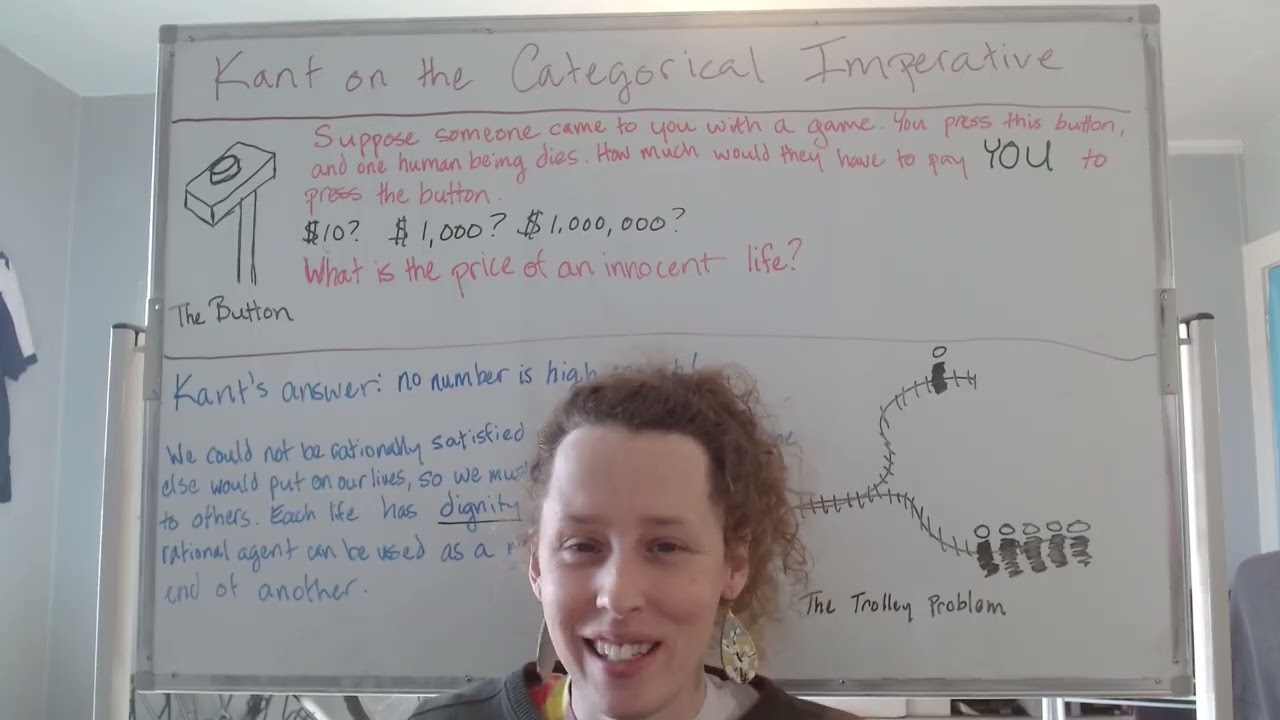 Kant on the Categorical Imperative
Suppose someone came to you with a game. You press this button,
and one human being dies. How much would they have to pay YOU to
press the button.
$10? $1,000? $1,000,000?
What is the price of an innocent life?
The Button
Kant's answer: no number is high
We could not be rationally satisfied
else would put on our lives, so we
to others. Each life has dignity
rational agent can be used as a
end of another.
The Trolley Problem